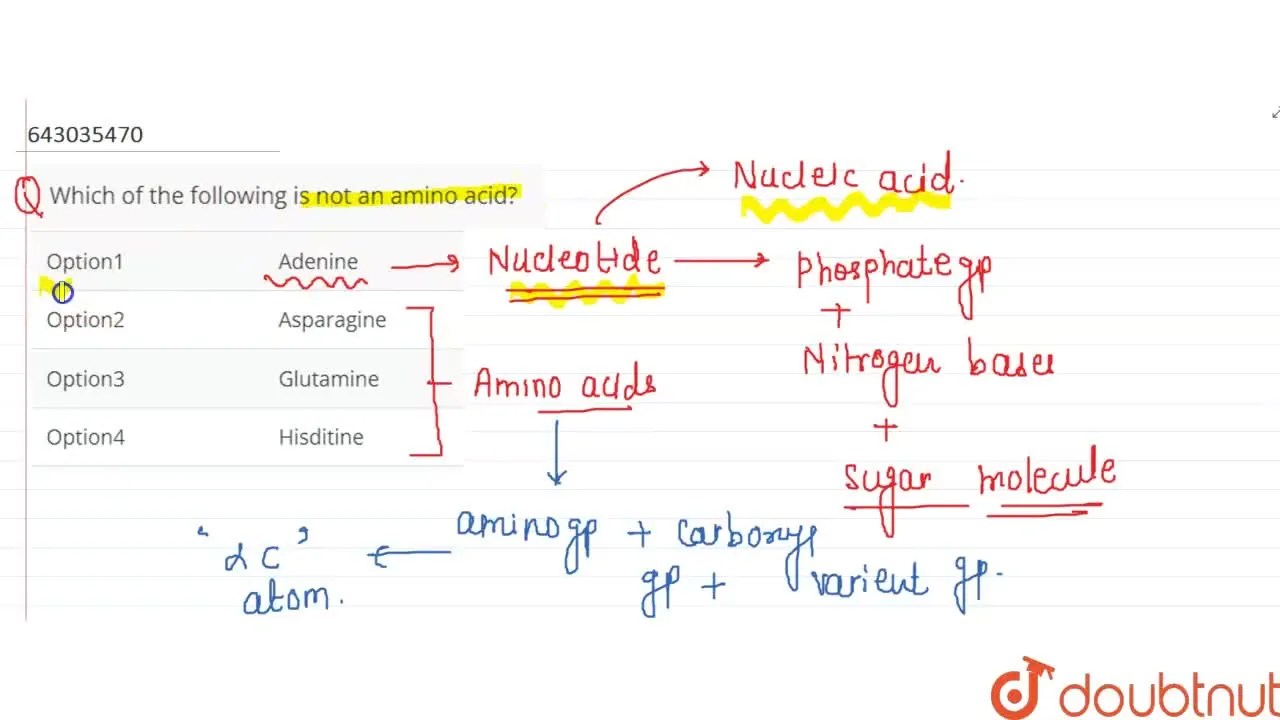 643035470
Q Which of the following is not an amino acid?
Option1 Adenine
Option2 Asparagine
Option3 Glutamine
Option4 Hisditine
Nucleic acid.
Nucleotide
Phosphate gp
+
Nitrogen bases
+
sugar molecule
Amino acids
amino gp + carboxyp
gp + varient gp.
"αC"
atom.
doubtnut